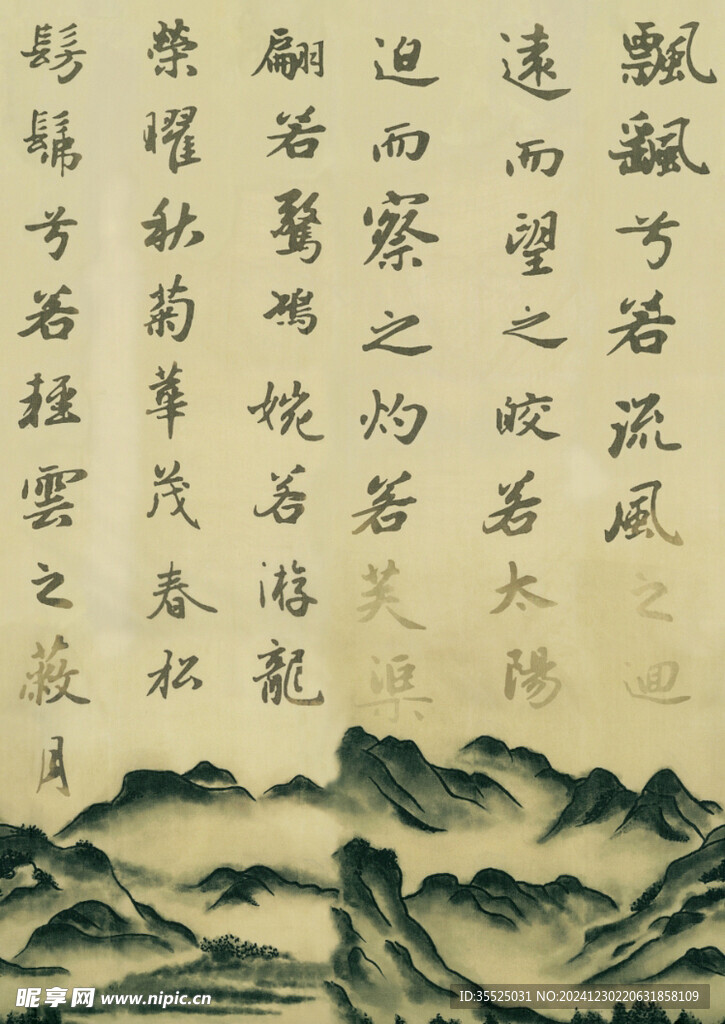 飄飖兮若流風之迴
遠而望之皎若太陽
迫而察之灼若芙渠
翩若驚鴻婉若游龍
榮曜秋菊華茂春松
髣髴兮若輕雲之蔽月
昵享网 www.nipic.cn
ID:35525031 NO:20241230220631858109